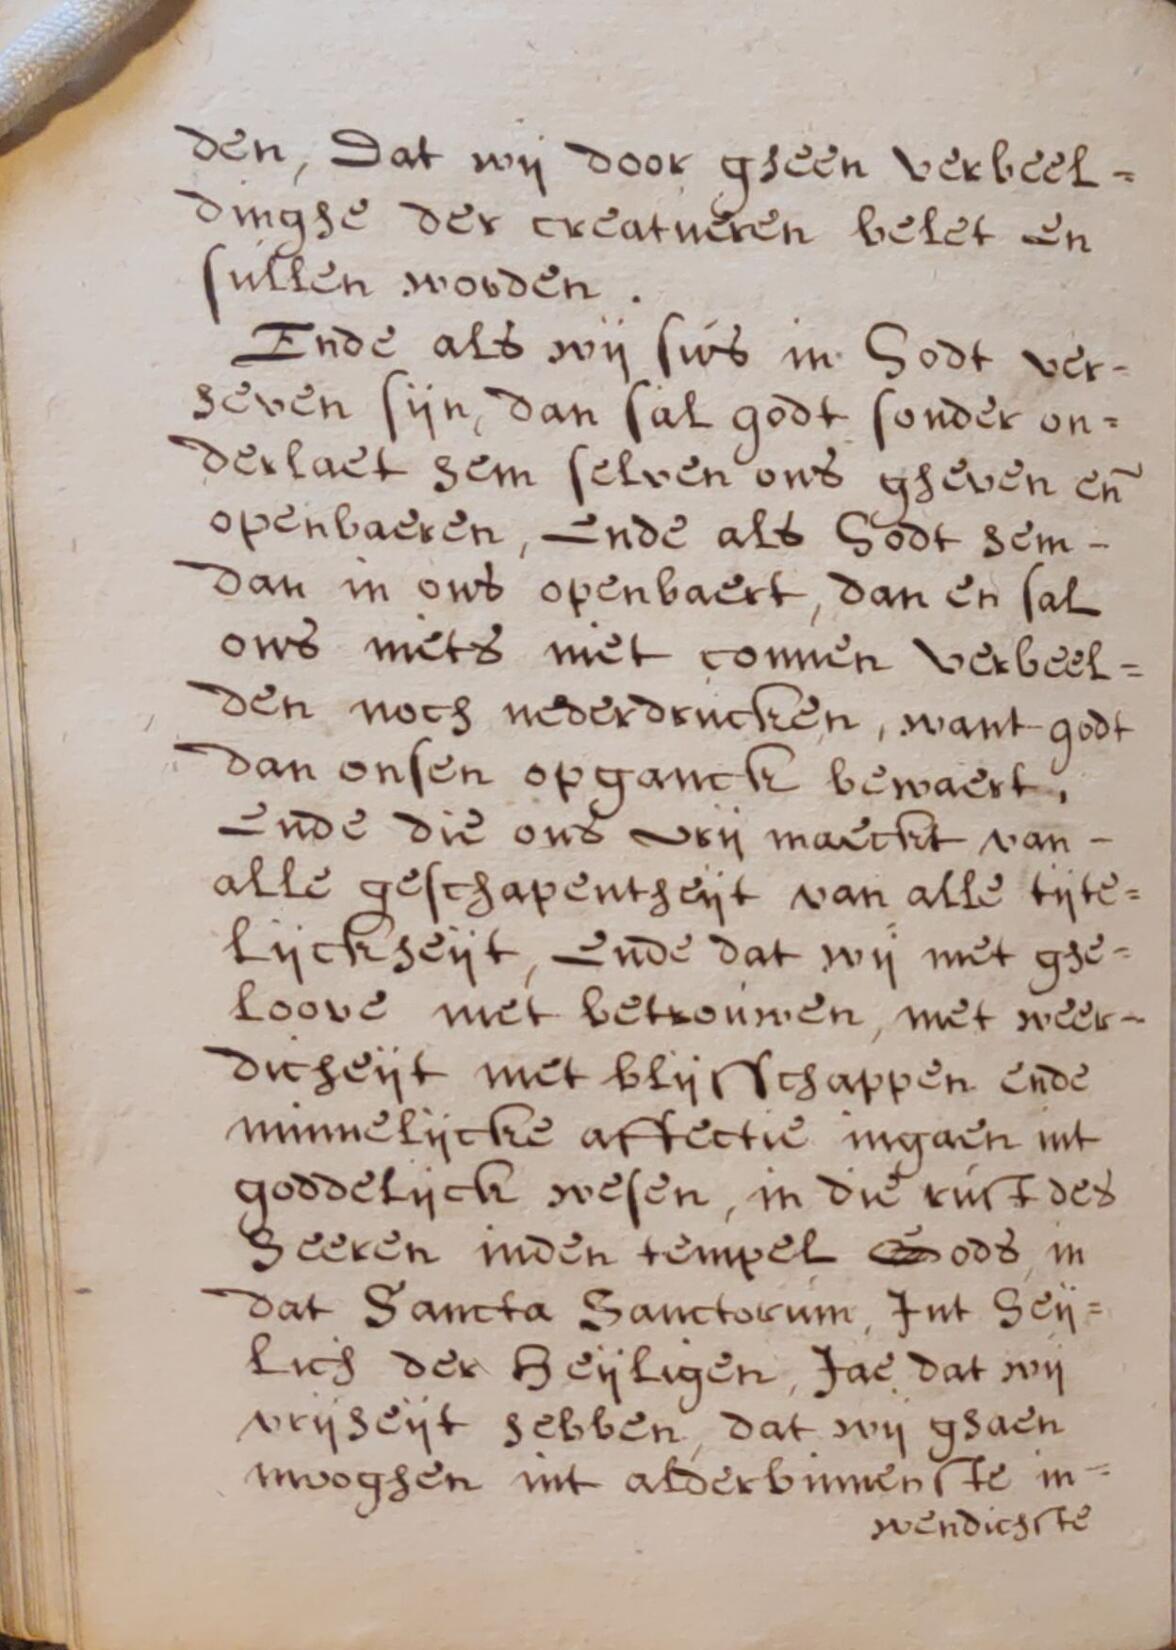 den, Dat wij door gheen verbeel=
dinghe der creatueren belet en
sullen worden.
Ende als wij sus in Godt ver-
heven sijn, dan sal godt sonder on=
derlaet hem selven ons gheven eñ
openbaeren, Ende als Godt hem-
dan in ons openbaert, dan en sal
ons niets niet connen verbeel=
den noch nederdrucken, want godt
dan onsen opganck bewaert,
Ende die ons vrij maeckt van-
alle geschapentheijt van alle tijte=
lijckheijt, Ende dat wij met ghe=
loove met betrouwen, met weer-
dicheijt met blijsschappen ende
minnelijcke affectie ingaen int
goddelijck wesen, in die rust des
Heeren inden tempel Gods, in
dat Sancta Sanctorum, Int Heij=
lich der Heijligen, Jae dat wij
vrijheijt hebben, dat wij ghaen
mooghen int alderbinnenste in=
wendichste